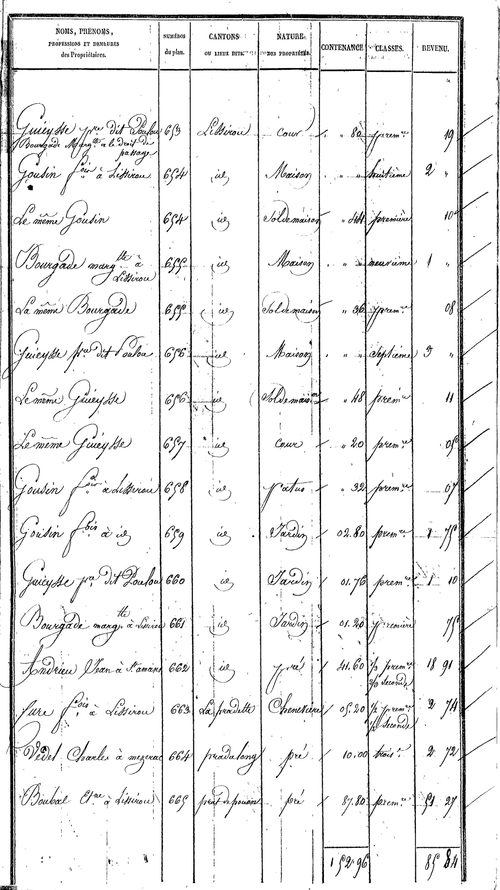 NOMS, PRÉNOMS, PROFESSIONS ET DEMEURES des Propriétaires. NUMÉROS du plan. CANTONS OU LIEUX DITS. NATURE DES PROPRIÉTÉS. CONTENANCE. CLASSES. REVENU.
Guieysse pre dit Poulou 653 Lissirou Cour " 80 premre 19
Bourgade Margte a le droit de passage
Gousin fois à Lissirou 654 id Maison " " huitième 2 "
Le même Gousin 654 id Sol de maison " 44 première 10
Bourgade margte à Lissirou 655 id Maison " " neuvième 1 "
La même Bourgade 655 id Sol de maison " 36 premre 08
Guieysse pre dit Poulou 656 id Maison " " septième 3 "
Le même Guieysse 656 id Sol de maison " 48 premre 11
Le même Guieysse 657 id Cour " 20 premre 05
Gousin à Lissirou 658 id patus " 32 premre 07
Gousin fois à id 659 id Jardin 02.80 premre 1 75
Guieysse pre dit Poulou 660 id Jardin 01.76 premre 1 10
Bourgade margte à Lissirou 661 id Jardin 01.20 première 75
Andrieu Jean à St amans 662 id pré 41.60 1/2 premre 1/2 seconde 18 91
fure fois à Lissirou 663 La pradelle Chenevière 05.20 1/2 premre 1/2 seconde 3 74
Vedel Charles à mezerac 664 prada long pré 10.00 troise 2 72
Boubal Etne à Lissirou 665 pré 87.80 premre 51 27
1 52 96 85 84